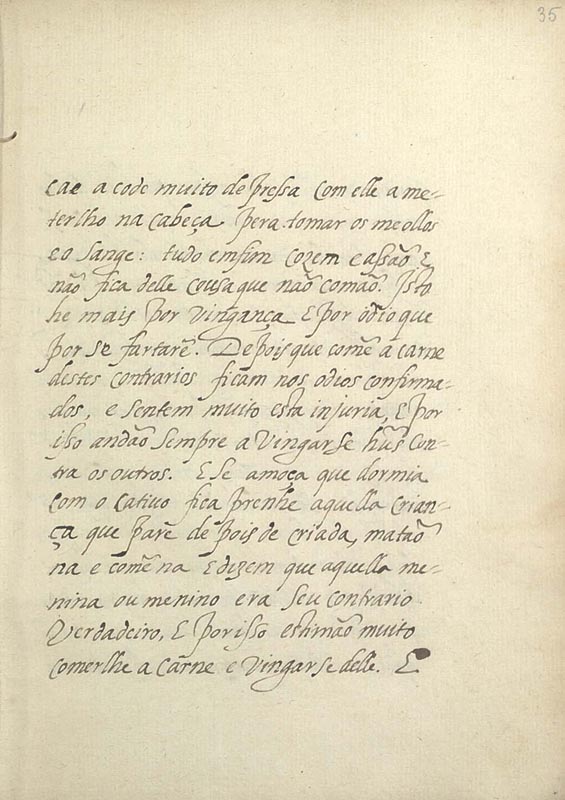 35
cae acode muito de pressa com elle a me-
terlho na cabeça pera tomar os meollos
e o sange: tudo emfim cozem e assão E
não fica delle cousa que não comão. Isto
he mais por vingança E por odio que
por se fartarẽ. Depois que comẽ a carne
destes contrarios ficam nos odios confirma-
dos, e sentem muito esta injuria, E por
isso andão sempre a vingarse hũs con-
tra os outros. E se a moça que dormia
com o cativo fica prenhe aquella crian-
ça que pare depois de criada, matão
na e comẽ na E dizem que aquella me-
nina ou menino era seu contrario
verdadeiro, E por isso estimão muito
comerlhe a carne e vingarse delle. E